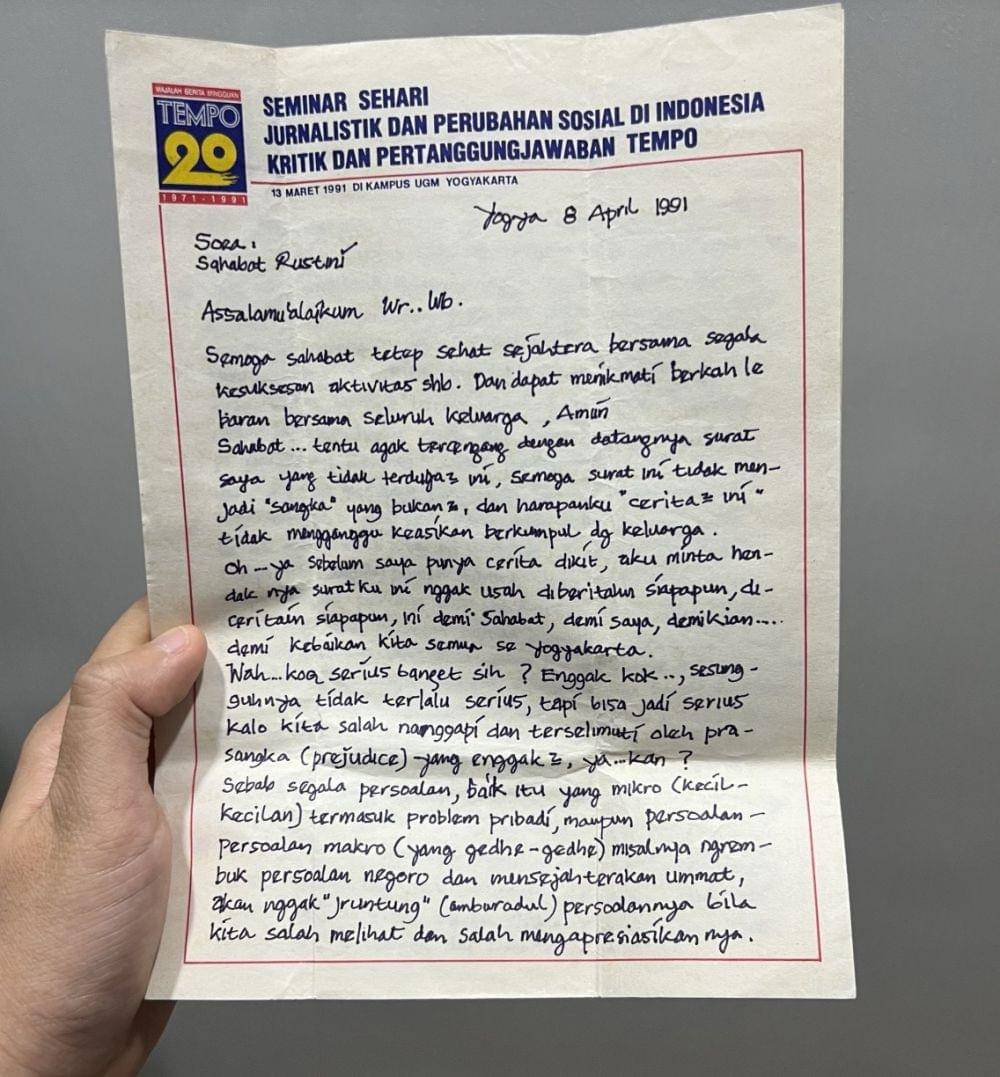 MAJALAH BERITA MINGGUAN
TEMPO
20
1971-1991
SEMINAR SEHARI
JURNALISTIK DAN PERUBAHAN SOSIAL DI INDONESIA
KRITIK DAN PERTANGGUNGJAWABAN TEMPO
13 MARET 1991 DI KAMPUS UGM YOGYAKARTA
Yogya 8 April 1991
Sdra.
Sahabat Rustini
Assalamu'alaikum Wr.. Wb.
Semoga sahabat tetep sehat sejahtera bersama segala
kesuksesan aktivitas shb. Dan dapat menikmati berkah le
baran bersama seluruh keluarga, Amin
Sahabat... tentu agak tercengang dengan datangnya surat
saya yang tidak terduga2 ini, semoga surat ini tidak men-
jadi "sangka" yang bukan2, dan harapanku "cerita2 ini"
tidak mengganggu keasikan berkumpul dg keluarga.
Oh-ya sebelum saya punya cerita dikit, aku minta hen-
dak nya suratku ini nggak usah diberitahu siapapun, di-
ceritain siapapun, ini demi Sahabat, demi saya, demikian....
demi kebaikan kita semua se Yogyakarta.
Wah...koq serius banget sih? Enggak kok.., sesung-
guhnya tidak terlalu serius, tapi bisa jadi serius
kalo kita salah nanggapi dan terselimuti oleh pra-
sangka (prejudice) yang enggak2, ya...kan?
Sebab segala persoalan, baik itu yang mikro (kecil-
kecilan) termasuk problem pribadi, maupun persoalan-
persoalan makro (yang gedhe-gedhe) misalnya ngrem-
buk persoalan negoro dan mensejahterakan ummat,
akan nggak "jruntung" (amburadul) persoalannya bila
kita salah melihat dan salah mengapresiasikan nya.